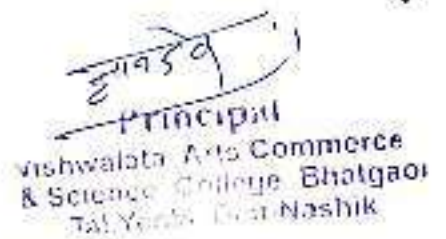 Principal
Vishwalata Arts Commerce
& Science College, Bhatgaon
Tal. Yeola Dist-Nashik